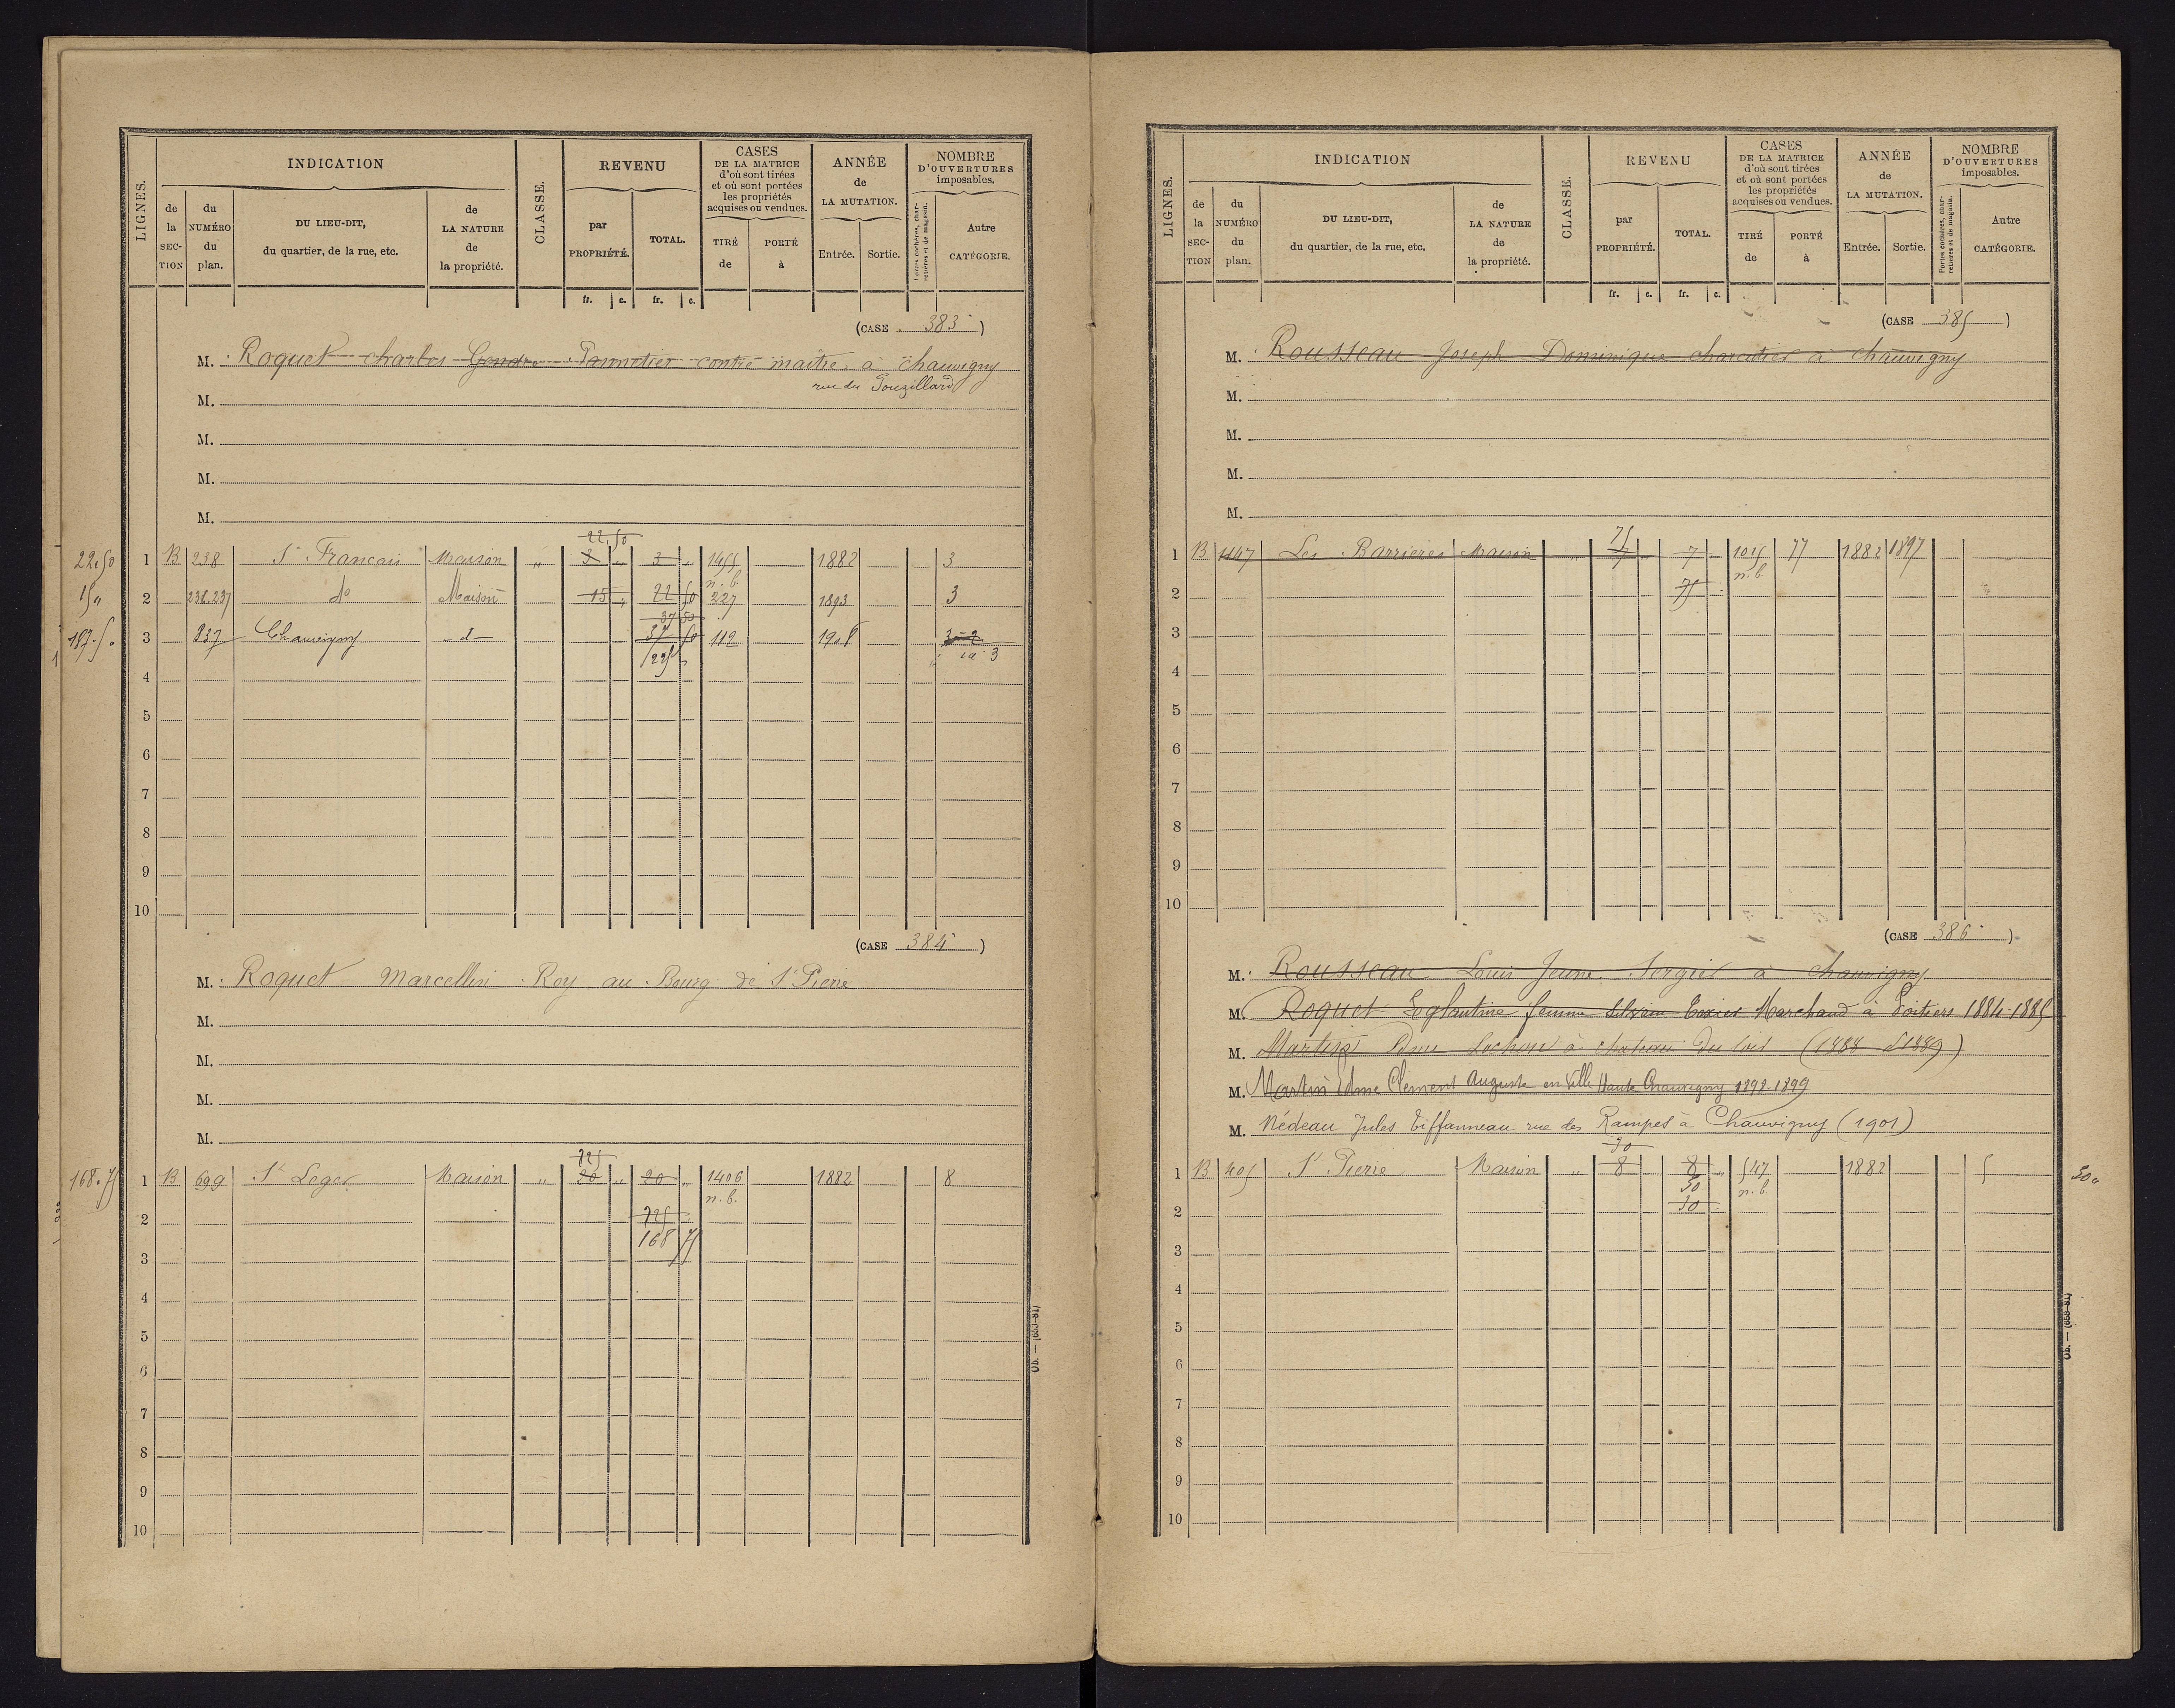 LIGNES. INDICATION CLASSE. REVENU CASES DE LA MATRICE d'où sont tirées et où sont portées les propriétés acquises ou vendues. ANNÉE de LA MUTATION. NOMBRE D'OUVERTURES imposables.
de la SECTION du NUMÉRO du plan. DU LIEU-DIT, du quartier, de la rue, etc. de LA NATURE de la propriété. par PROPRIÉTÉ. TOTAL. TIRÉ de PORTÉ à Entrée. Sortie. Portes cochères, charretières et de magasin. Autre CATÉGORIE.
fr. c. fr. c.
(CASE 383)
M. Roquet charles Gendre Pannetier contre maitre à chauvigny
rue du
M.
M.
M.
M.
22.50
22.50 1 B 238 St Francais Maison " 3 " 3 " 1455 1882 3
n. b.
15 " 2 238.237 do Maison 15 " 22 50 227 1893 3
37 50
187.50 3 837 Chauvigny d 37 50 112 1908
225 " 3
4
5
6
7
8
9
10
(CASE 384)
M. Roquet Marcellin Roy au Bourg de St Pierre
M.
M.
M.
M.
225
168.75 1 B 699 St Leger Maison " 20 " 20 " 1406 1882 8
n. b.
2 225
168 75
3
4
5
6
7
8
9
10
Ub. — (653-81)
LIGNES. INDICATION CLASSE. REVENU CASES DE LA MATRICE d'où sont tirées et où sont portées les propriétés acquises ou vendues. ANNÉE de LA MUTATION. NOMBRE D'OUVERTURES imposables.
de la SECTION du NUMÉRO du plan. DU LIEU-DIT, du quartier, de la rue, etc. de LA NATURE de la propriété. par PROPRIÉTÉ. TOTAL. TIRÉ de PORTÉ à Entrée. Sortie. Portes cochères, charretières et de magasin. Autre CATÉGORIE.
fr. c. fr. c.
(CASE 385)
M. Rousseau Joseph Dominique charcutier à chauvigny
M.
M.
M.
M.
75
1 B 1147 Les Barrieres Maison " 7 " 7 " 1015 77 1882 1897
n. b.
2 75
3
4
5
6
7
8
9
10
(CASE 386)
M. Rousseau Louis Jeune Sergier à chauvigny
M. Roquet Eglantine femme Silvain Texier Marchand à Poitiers 1884-1885
M. Martin Edme (1888 1889)
M. Martin Edme Clement Auguste en Ville Haute Chauvigny 1898-1899
M. Nédeau Jules Tiffanneau rue des Rampes à Chauvigny (1901)
30
1 B 405 St Pierre Maison " 8 8 " 547 1882 5 50 "
n. b.
30
2
3
4
5
6
7
8
9
10
Ub. — (653-81)